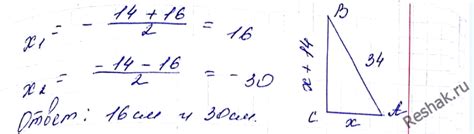 x₁ = - \frac{14 + 16}{2} = 16
x₂ = \frac{-14 - 16}{2} = -30
Ответ: 16 см и 30 см.
B
x + 14
34
C
x
A
Reshak.ru